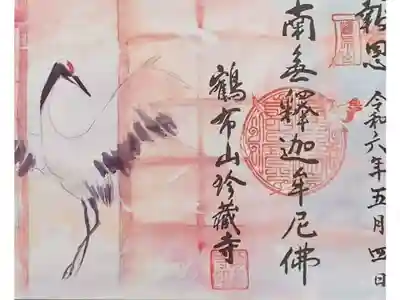 報恩
令和六年五月四日
南無釋迦牟尼佛
鶴布山珍藏寺